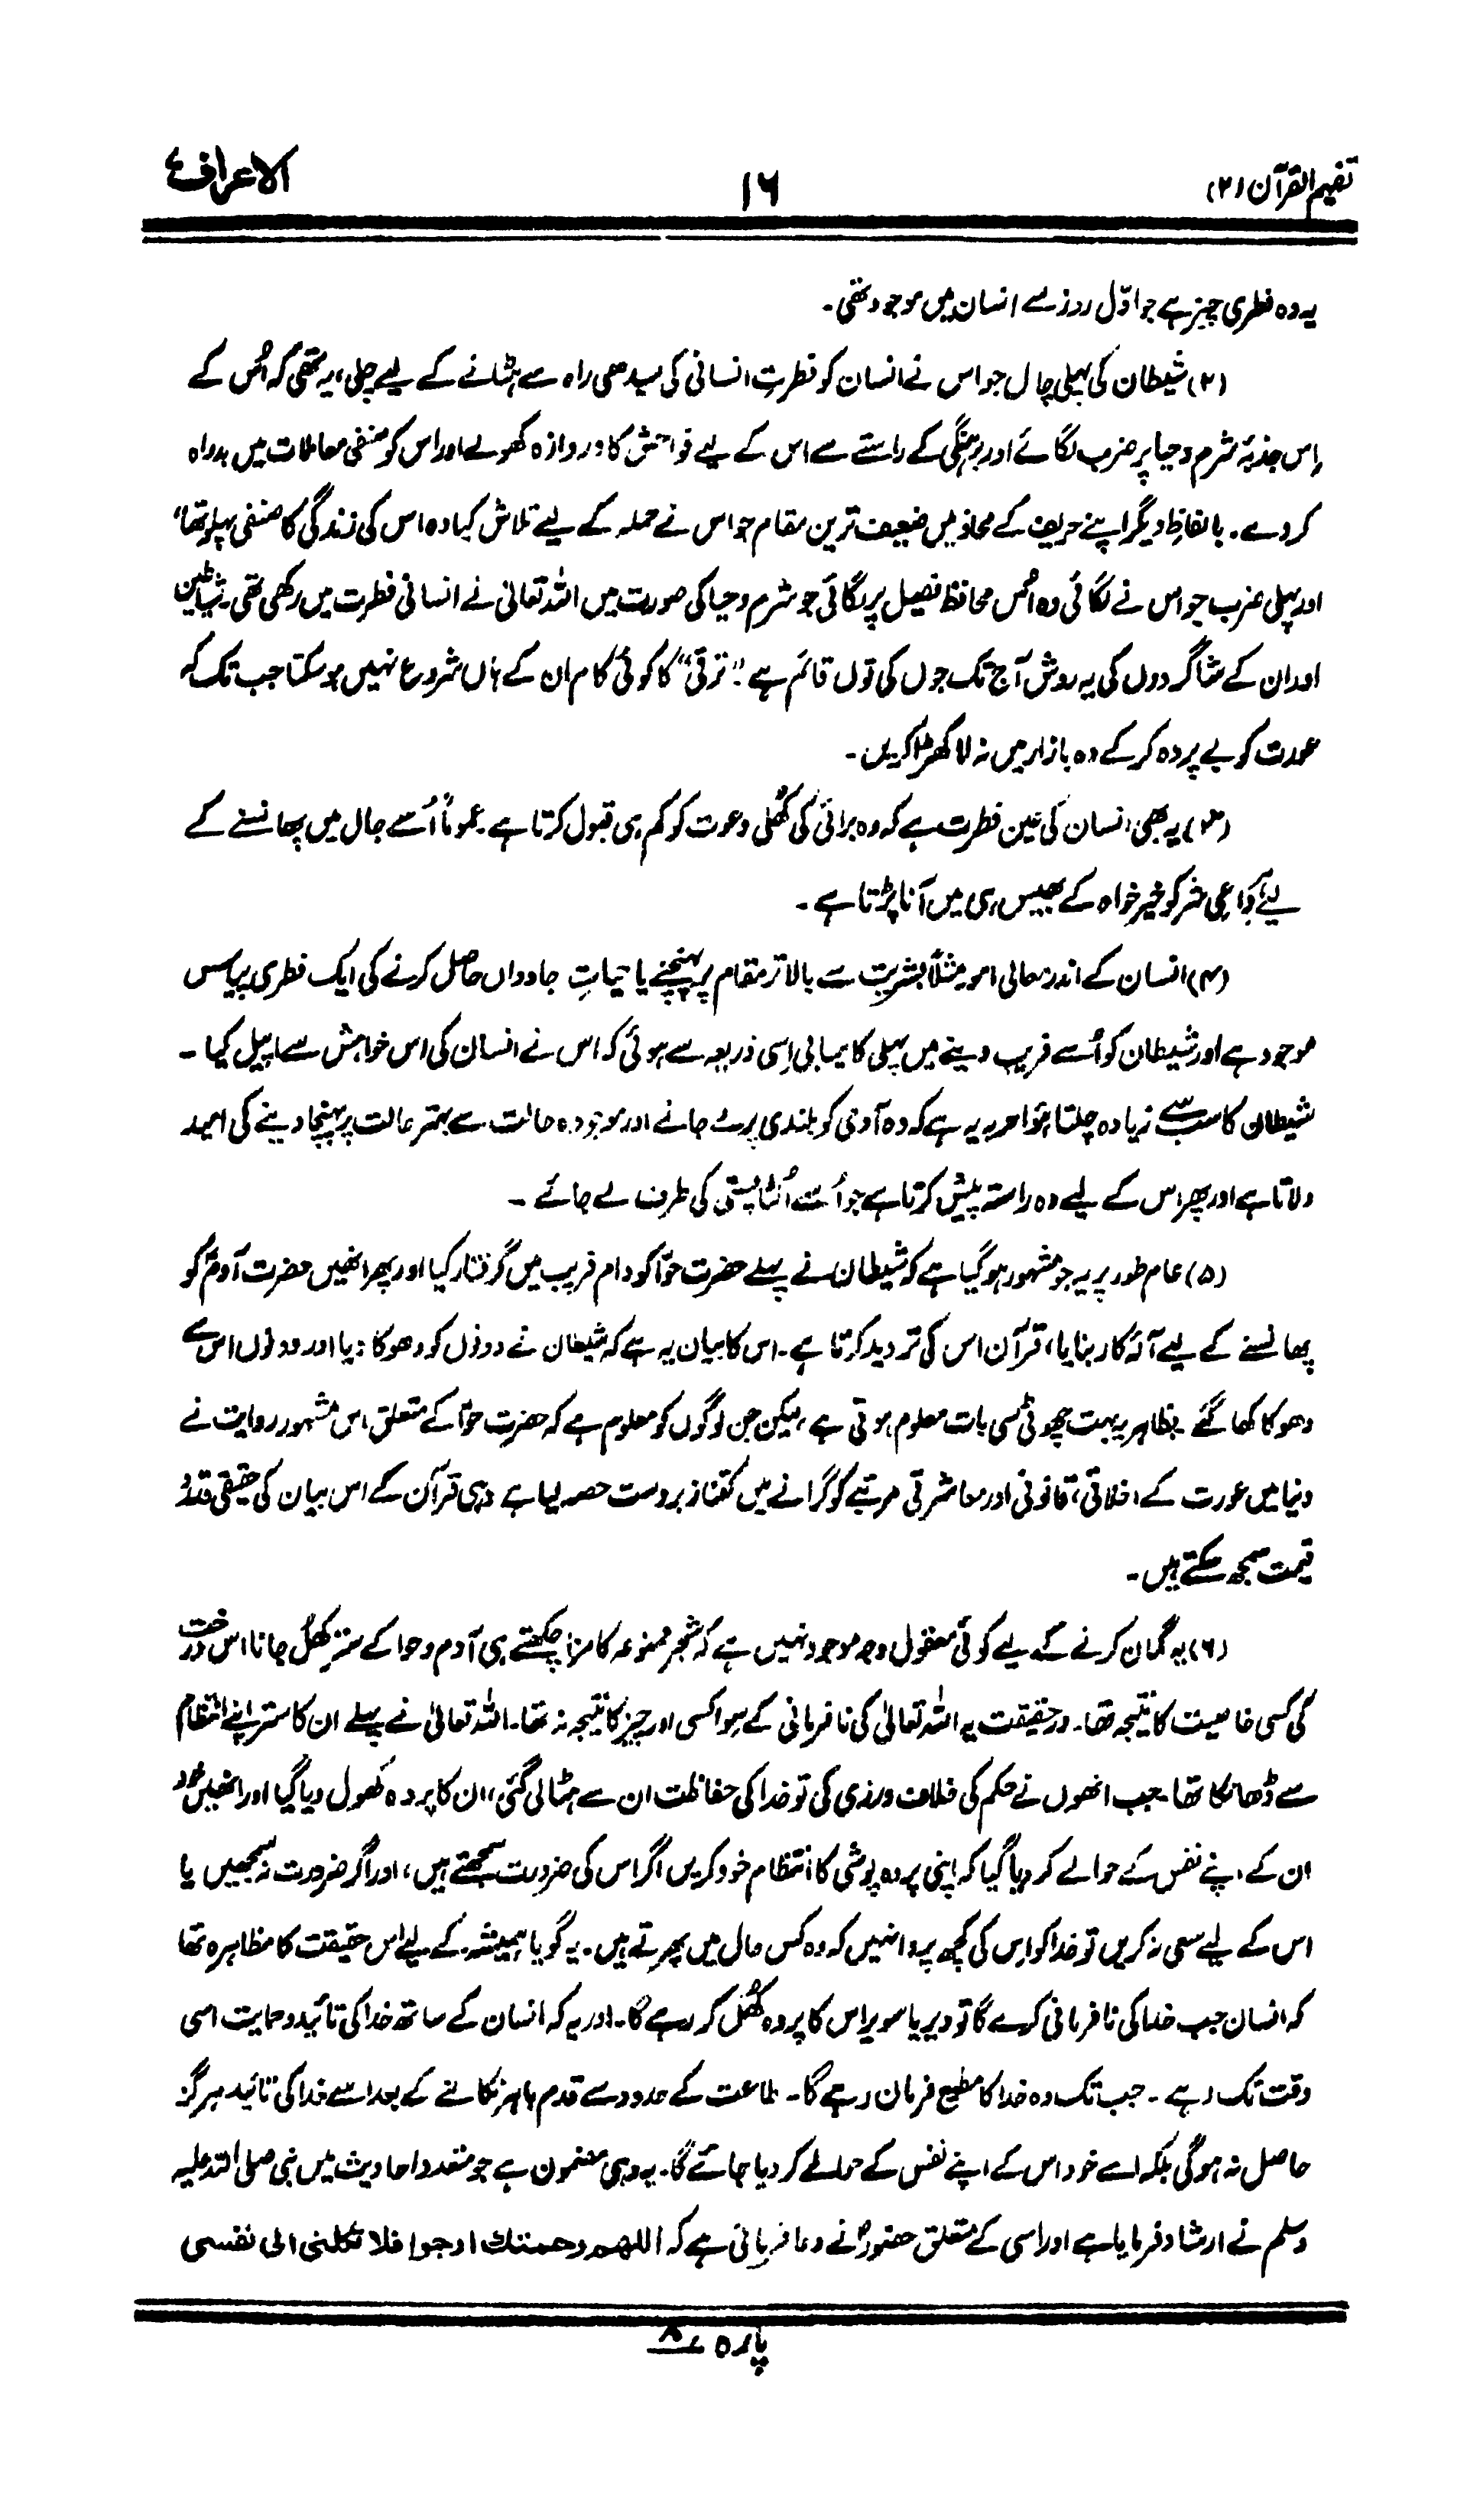 تفہیم القرآن (۲)
۱۶
الاعراف ۷
یہ وہ فطری چیز ہے جو اوّل روز سے انسان میں موجود تھی۔
(۲) شیطان کی پہلی چال جو اس نے انسان کو فطرتِ انسانی کی سیدھی راہ سے ہٹانے کے لیے چلی، یہ تھی کہ اُس کے
اِس جذبۂ شرم و حیا پر ضرب لگائے اور برہنگی کے راستے سے اس کے لیے فواحش کا دروازہ کھولے اور اس کو صنفی معاملات میں بدراہ
کر دے۔ بالفاظِ دیگر اپنے حریف کے محاذ میں ضعیف ترین مقام جو اس نے حملہ کے لیے تلاش کیا وہ اس کی زندگی کا صنفی پہلو تھا،
اور پہلی ضرب جو اس نے لگائی وہ اُس محافظ فصیل پر لگائی جو شرم و حیا کی صورت میں اللہ تعالیٰ نے انسانی فطرت میں رکھی تھی۔ شیاطین
اور ان کے شاگردوں کی یہ روش آج تک جوں کی توں قائم ہے۔ ”ترقی“ کا کوئی کام ان کے ہاں شروع نہیں ہو سکتا جب تک کہ
عورت کو بے پردہ کر کے وہ بازار میں نہ لا کھڑا کریں۔
(۳) یہ بھی انسان کی عین فطرت ہے کہ وہ برائی کی کھُلی دعوت کو کم ہی قبول کرتا ہے۔ عموماً اُسے جال میں پھانسنے کے
لیے داعی شر کو خیر خواہ کے بھیس ہی میں آنا پڑتا ہے۔
(۴) انسان کے اندر معالی امور مثلاً بشریت سے بالاتر مقام پر پہنچنے یا حیاتِ جاوداں حاصل کرنے کی ایک فطری پیاس
موجود ہے اور شیطان کو اُسے فریب دینے میں پہلی کامیابی اِسی ذریعہ سے ہوئی کہ اس نے انسان کی اس خواہش سے اپیل کیا۔
شیطان کا سب سے زیادہ چلتا ہوٴا حربہ یہ ہے کہ وہ آدمی کو بلندی پر لے جانے اور موجودہ حالت سے بہتر حالت پر پہنچا دینے کی امید
دلاتا ہے اور پھر اس کے لیے وہ راستہ پیش کرتا ہے جو اُسے اُلٹا پستی کی طرف لے جائے۔
(۵) عام طور پر یہ جو مشہور ہو گیا ہے کہ شیطان نے پہلے حضرت حوّا کو دام فریب میں گرفتار کیا اور پھر انھیں حضرت آدمؑ کو
پھانسنے کے لیے آلۂ کار بنایا، قرآن اس کی تردید کرتا ہے۔ اس کا بیان یہ ہے کہ شیطان نے دونوں کو دھوکا دیا اور دونوں اس سے
دھوکا کھا گئے۔ بظاہر یہ بہت چھوٹی سی بات معلوم ہوتی ہے، لیکن جن لوگوں کو معلوم ہے کہ حضرت حوّا کے متعلق اس مشہور روایت نے
دنیا میں عورت کے اخلاقی، قانونی اور معاشرتی مرتبے کو گرانے میں کتنا زبردست حصہ لیا ہے وہی قرآن کے اس بیان کی حقیقی قدر و
قیمت سمجھ سکتے ہیں۔
(۶) یہ گمان کرنے کے لیے کوئی معقول وجہ موجود نہیں ہے کہ شجرِ ممنوعہ کا مزا چکھتے ہی آدم و حوا کے ستر کھُل جانا اس درخت
کی کسی خاصیت کا نتیجہ تھا۔ درحقیقت یہ اللہ تعالیٰ کی نافرمانی کے سوا کسی اور چیز کا نتیجہ نہ تھا۔ اللہ تعالیٰ نے پہلے ان کا ستر اپنے انتظام
سے ڈھانکا تھا۔ جب انھوں نے حکم کی خلاف ورزی کی تو خدا کی حفاظت ان سے ہٹا لی گئی، ان کا پردہ کھول دیا گیا اور انھیں خود
ان کے اپنے نفس کے حوالے کر دیا گیا کہ اپنی پردہ پوشی کا انتظام خود کریں اگر اس کی ضرورت سمجھتے ہیں، اور اگر ضرورت نہ سمجھیں یا
اس کے لیے سعی نہ کریں تو خدا کو اِس کی کچھ پروا نہیں کہ وہ کس حال میں پھرتے ہیں۔ یہ گویا ہمیشہ کے لیے اس حقیقت کا مظاہرہ تھا
کہ انسان جب خدا کی نافرمانی کرے گا تو دیر یا سویر اس کا پردہ کھُل کر رہے گا۔ اور یہ کہ انسان کے ساتھ خدا کی تائید و حمایت اسی
وقت تک رہے۔ جب تک وہ خدا کا مطیع فرمان رہے گا۔ طاعت کے حدود سے قدم باہر نکالنے کے بعد اسے خدا کی تائید ہرگز
حاصل نہ ہوگی بلکہ اسے خود اس کے اپنے نفس کے حوالے کر دیا جائے گا۔ یہ وہی مضمون ہے جو متعدد احادیث میں نبی صلی اللہ علیہ
وسلم نے ارشاد فرمایا ہے اور اسی کے متعلق حضورؐ نے دعا فرمائی ہے کہ اللھم رحمتک ارجوا فلا تکلنی الی نفسی
پارہ ۸